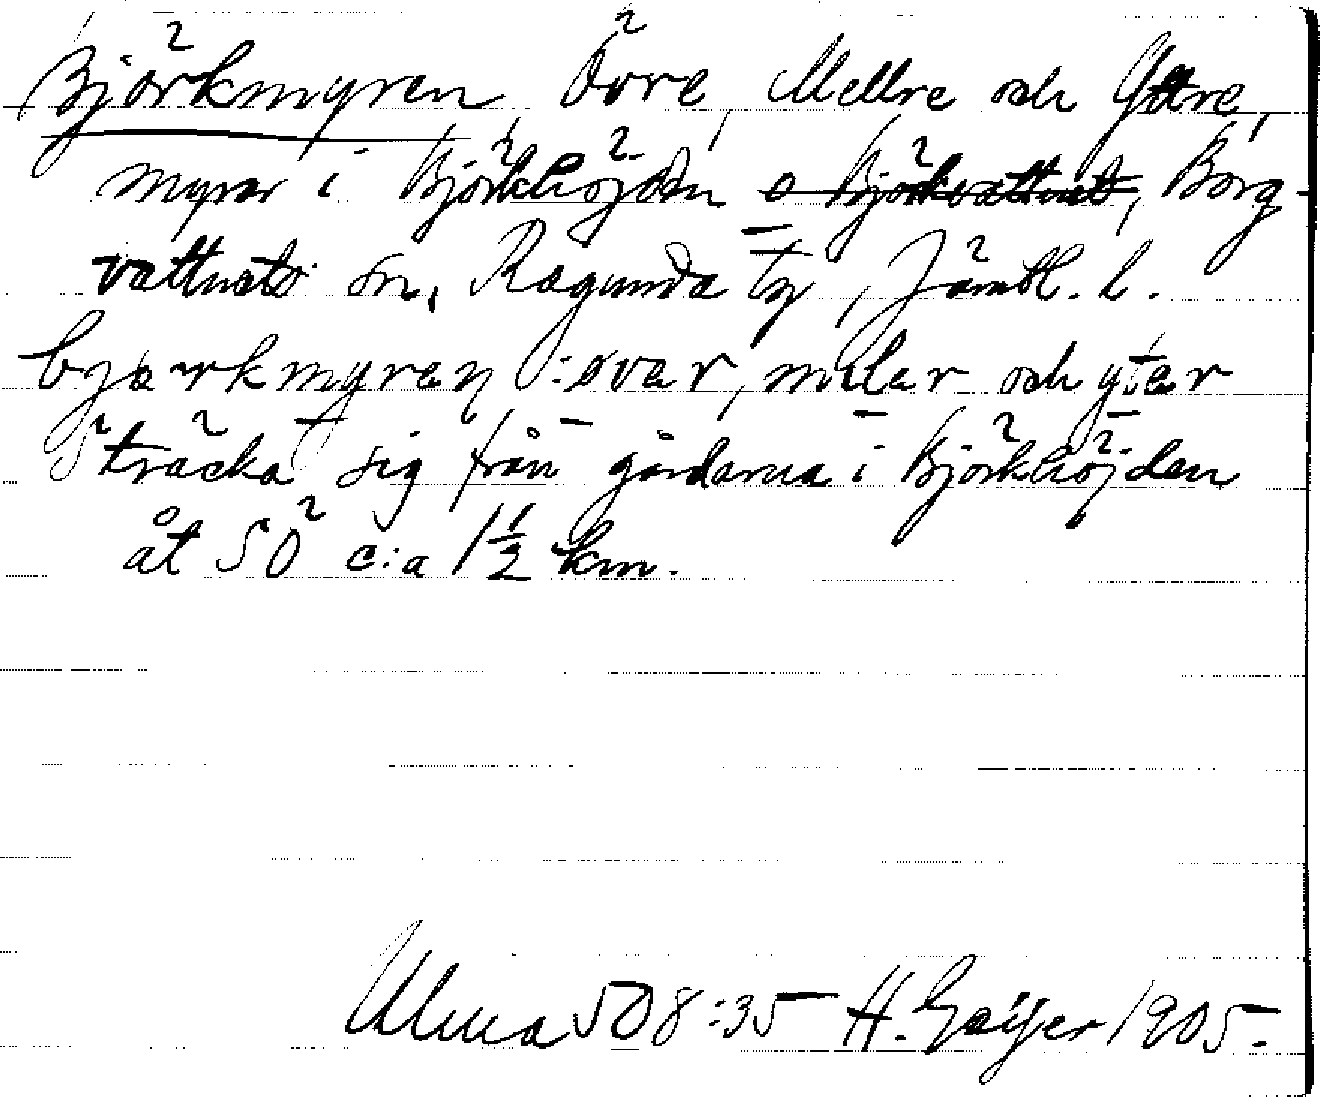 Björkmyren, Övre, Mellre och Yttre,
myrar i Björkhöjden o Björkvattnet, Borg-
vattnets sn, Ragunda tg, Jämtl. l.
bjarkmyren : øvar, milar och ytar
Sträcka sig från gårdarna i Björkhöjden
åt SÖ c:a 1½ km.
Ulma SO 8:35 H. Geijer 1905.